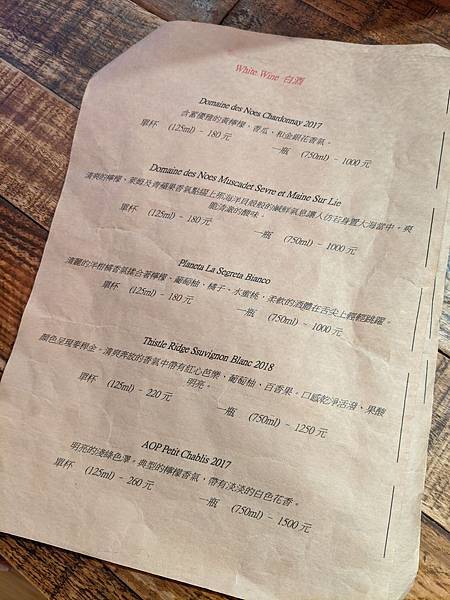 White Wine 白酒
Domaine des Noes Chardonnay 2017
含蓄優雅的黃檸檬、香瓜、和金銀花香氣。
單杯 (125ml) - 180 元
一瓶 (750ml) - 1000 元
Domaine des Noes Muscadet Sevre et Maine Sur Lie
清爽的檸檬、萊姆及青蘋果香氣點綴上那海洋貝殼般的鹹鮮氣息讓人彷彿身置大海當中。爽
脆清澈的酸味。
單杯 (125ml) - 180 元
一瓶 (750ml) - 1000 元
Planeta La Segreta Bianco
清麗的洋柑橘香氣揉合著檸檬、葡萄柚、橘子、水蜜桃，柔軟的酒體在舌尖上輕輕跳躍。
單杯 (125ml) - 180 元
一瓶 (750ml) - 1000 元
Thistle Ridge Ssuvignon Blanc 2018
顏色呈現麥桿金。清爽奔放的香氣中帶有紅心芭樂、葡萄柚、百香果。口感乾淨活潑、果酸
明亮。
單杯 (125ml) - 220 元
一瓶 (750ml) - 1250 元
AOP Petit Chablis 2017
明亮的淺綠色澤。典型的檸檬香氣，帶有淡淡的白色花香。
單杯 (125ml) - 260 元
一瓶 (750ml) - 1500 元